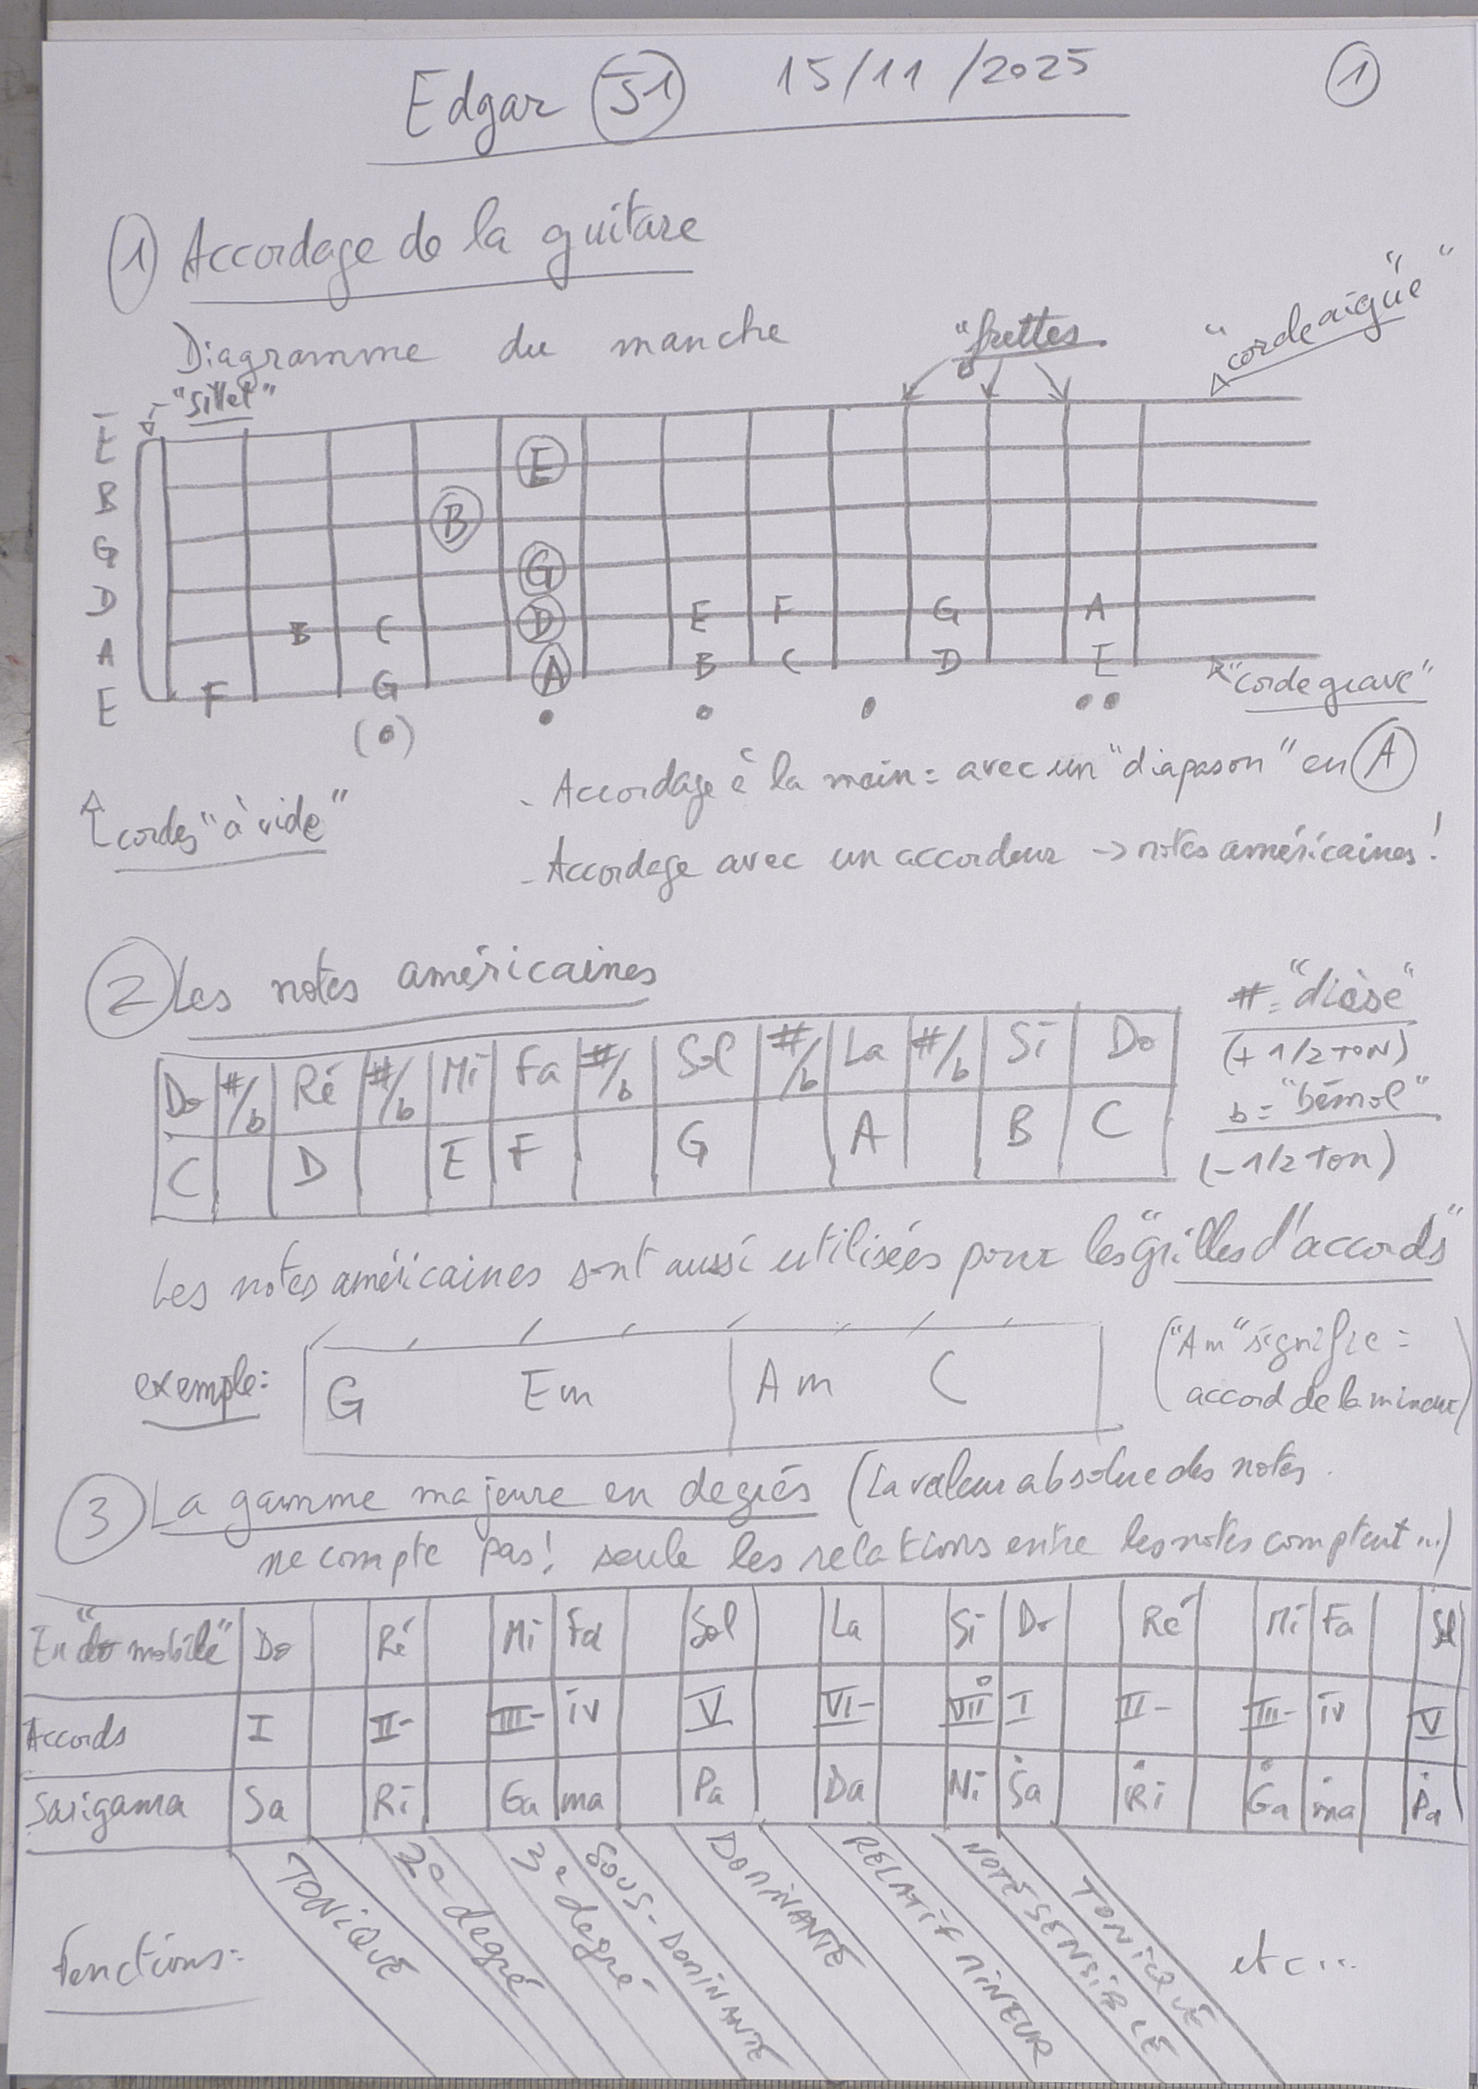 Edgar S1 15/11/2025 1
1 Accordage de la guitare
Diagramme du manche "frettes "corde aigüe"
"Sillet"
E
B
G
D
A
E
E
B
G
B C D E F G A
F G A B C D E
"corde grave"
- Accordage à la main = avec un "diapason" en A
cordes "à vide"
- Accordage avec un accordeur -> notes américaines!
2 Les notes américaines
Do #/b Ré #/b Mi Fa #/b Sol #/b La #/b Si Do
C D E F G A B C
# = "dièse"
(+ 1/2 TON)
b = "bémol"
(- 1/2 Ton)
Les notes américaines sont aussi utilisées pour les "grilles d'accords"
exemple: G Em Am C
("Am" signifie =
accord de la mineur)
3 La gamme majeure en degrés (La valeur absolue des notes
ne compte pas! seule les relations entre les notes comptent...)
En "do mobile" Do Ré Mi Fa Sol La Si Do Ré Mi Fa Sol
Accords I II- III- iv V VI- VII° I II- III- iv V
Sarigama Sa Ri Ga ma Pa Da Ni Ṡa Ṙi Ġa ṁa Ṗa
Fonctions: TONIQUE 2e degré 3e degré SOUS-DOMINANTE DOMINANTE RELATIF MINEUR NOTE SENSIBLE TONIQUE etc...